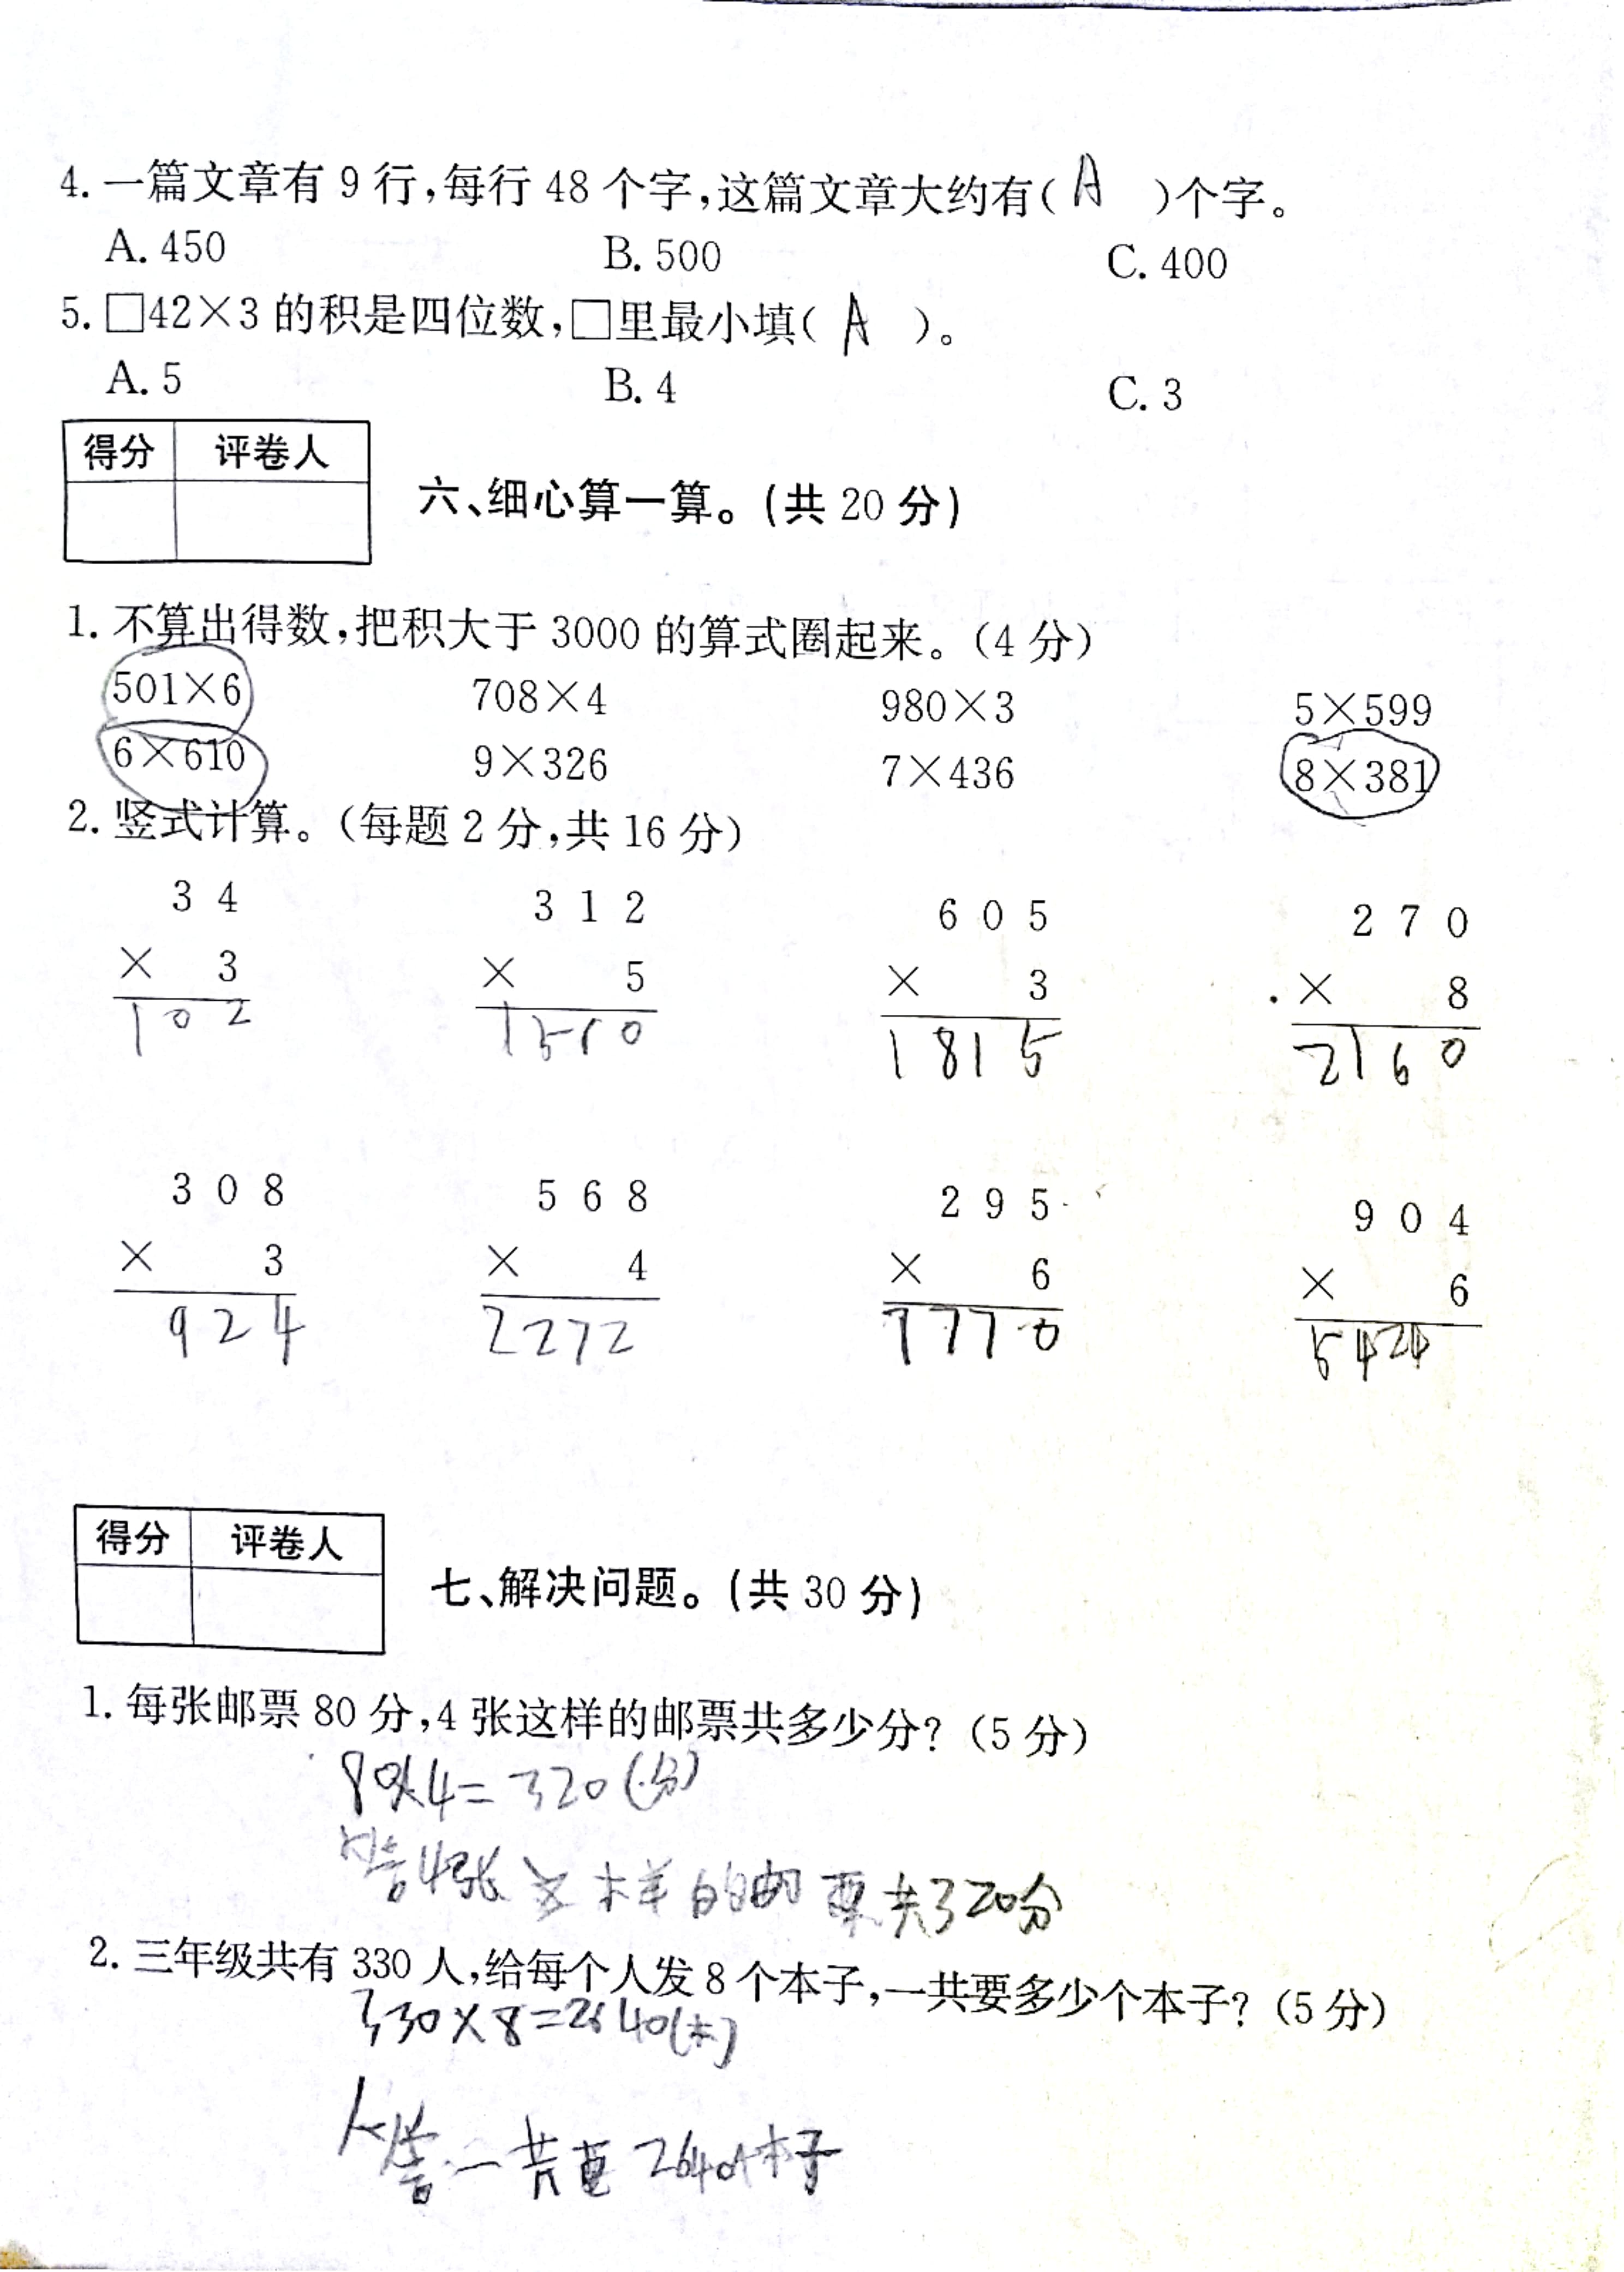 4. 一篇文章有 9 行,每行 48 个字,这篇文章大约有( A )个字。
A. 450 B. 500 C. 400
5. □42×3 的积是四位数,□里最小填( A )。
A. 5 B. 4 C. 3
得分 评卷人
六、细心算一算。(共 20 分)
1. 不算出得数,把积大于 3000 的算式圈起来。(4 分)
501×6 708×4 980×3 5×599
6×610 9×326 7×436 8×381
2. 竖式计算。(每题 2 分,共 16 分)
3 4 3 1 2 6 0 5 2 7 0
× 3 × 5 × 3 × 8
102 1510 1815 2160
3 0 8 5 6 8 2 9 5 9 0 4
× 3 × 4 × 6 × 6
924 2272 1770 5424
得分 评卷人
七、解决问题。(共 30 分)
1. 每张邮票 80 分,4 张这样的邮票共多少分? (5 分)
80×4=320(分)
答4张这样的邮票共320分
2. 三年级共有 330 人,给每个人发 8 个本子,一共要多少个本子? (5 分)
330×8=2640(本)
答一共要2640本子